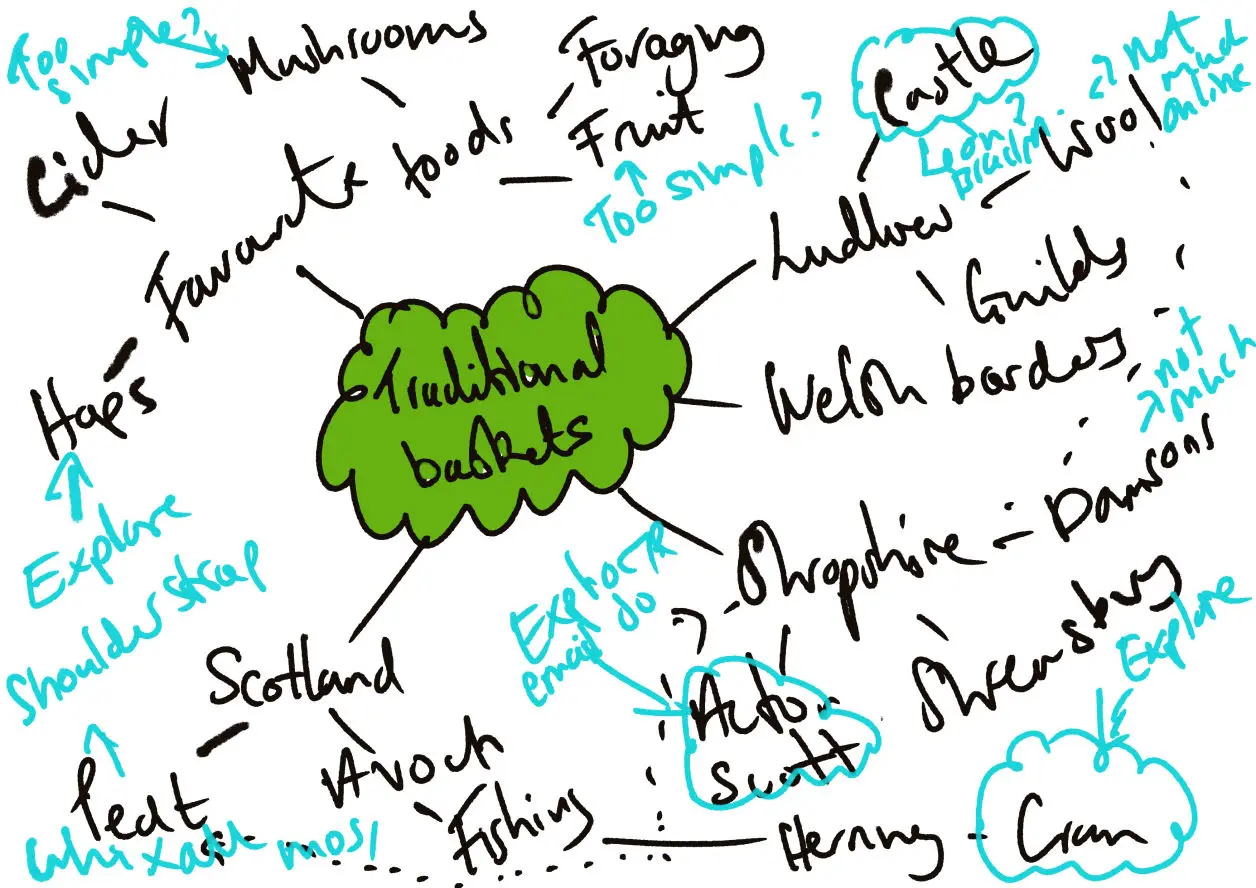 Too
simple?
Mushrooms
Foraging
Fruit
Too simple?
Cider
Favourite foods
Hops
Explore
Shoulder strap
Castle
Wool
? not
much
online
Ludlow
Guilds
Welsh borders
? not
much
Traditional
baskets
Shropshire
Damsons
Shrewsbury
Explore
Explore
email
Acton
Scott
?
Scotland
Peat
Avoch
Fishing
Herring
Cran